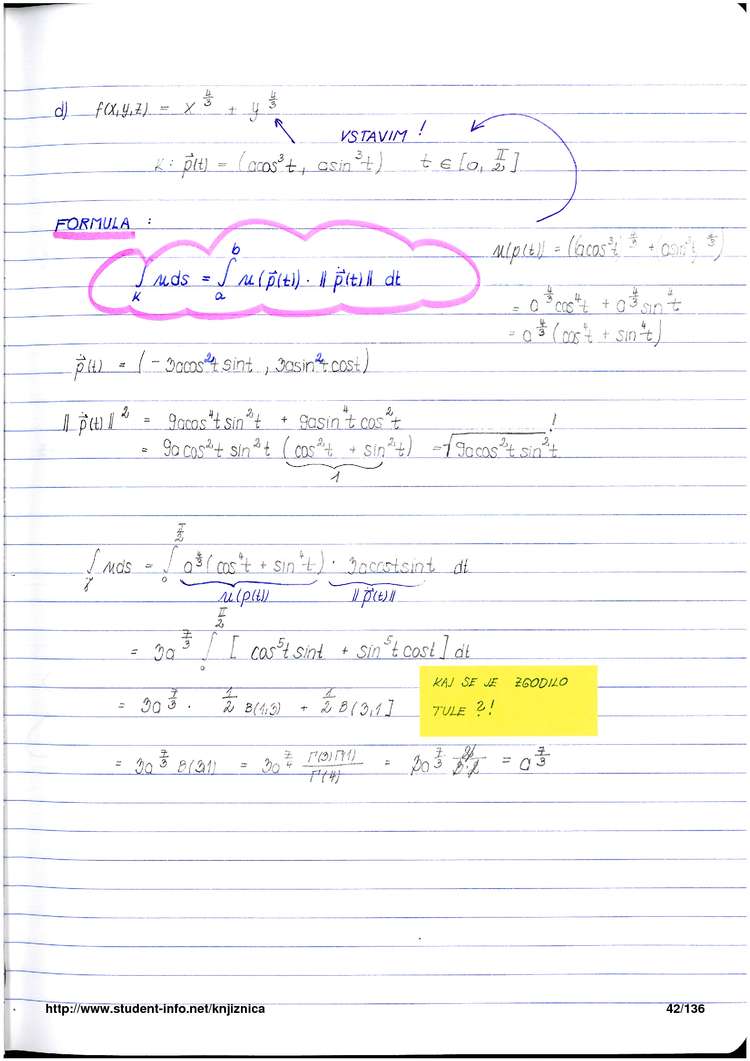 d) f(x,y,z) = x^{4/3} + y^{4/3}
VSTAVIM !
K: p⃗(t) = (acos³t, asin³t) t ∈ [0, π/2]
FORMULA :
∫_K u ds = ∫_a^b u(p⃗(t)) · ‖ṗ⃗(t)‖ dt
u(p(t)) = ((acos³t)^{4/3} + (asin³t)^{4/3})
= a^{4/3}cos⁴t + a^{4/3}sin⁴t
= a^{4/3}(cos⁴t + sin⁴t)
ṗ⃗(t) = (-3acos²t sint, 3asin²t cost)
‖ṗ⃗(t)‖² = 9acos⁴t sin²t + 9asin⁴t cos²t
= 9acos²t sin²t (cos²t + sin²t) = √(9acos²t sin²t) !
1
∫_γ u ds = ∫_0^{π/2} a^{4/3}(cos⁴t + sin⁴t) · 3acost sint dt
u(p(t)) ‖ṗ⃗(t)‖
= 3a^{7/3} ∫_0^{π/2} [ cos⁵t sint + sin⁵t cost ] dt
KAJ SE JE ZGODILO
= 3a^{7/3} · 1/2 B(1,3) + 1/2 B(3,1]
TULE ?!
= 3a^{7/3} B(3,1) = 3a^{7/4} Γ(3)Γ(1)/Γ(4) = 3a^{7/3} 2/3·2 = a^{7/3}
http://www.student-info.net/knjiznica
42/136